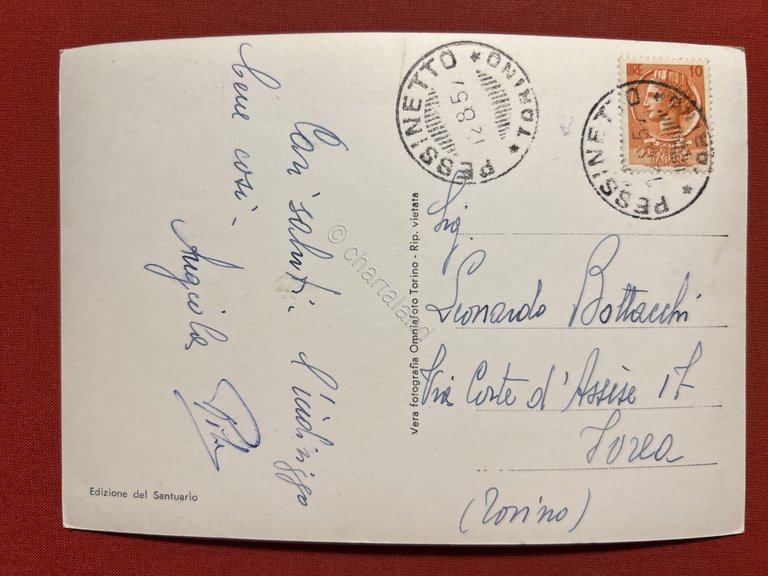 Cari saluti. L'indirizzo
bene così -
Angiola
PESSINETTO * TORINO *
12 8 57
LIRE 10
PESSINETTO * TORINO *
Vera fotografia Omniafoto Torino - Rip. vietata
Sig.
Leonardo Bottacchi
Via Corte d'Assise 17
Ivrea
(Torino)
Edizione del Santuario
© chartaland